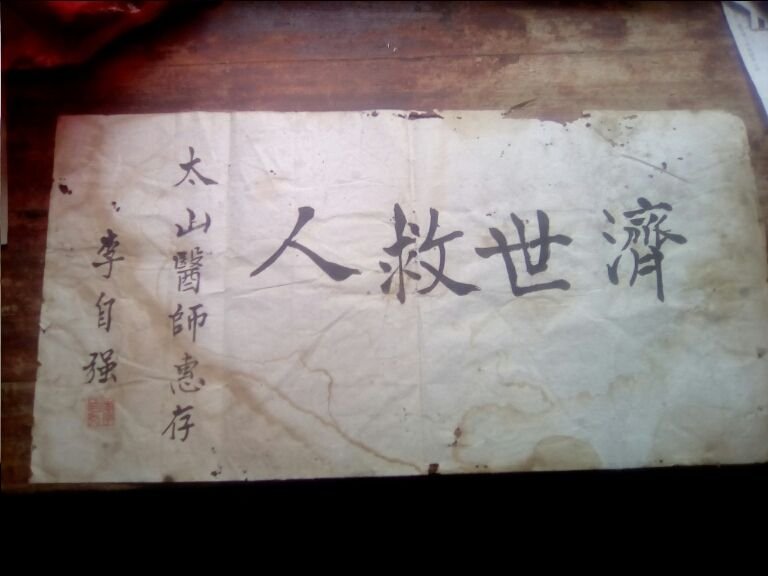 濟世救人
太山醫師惠存
李自强